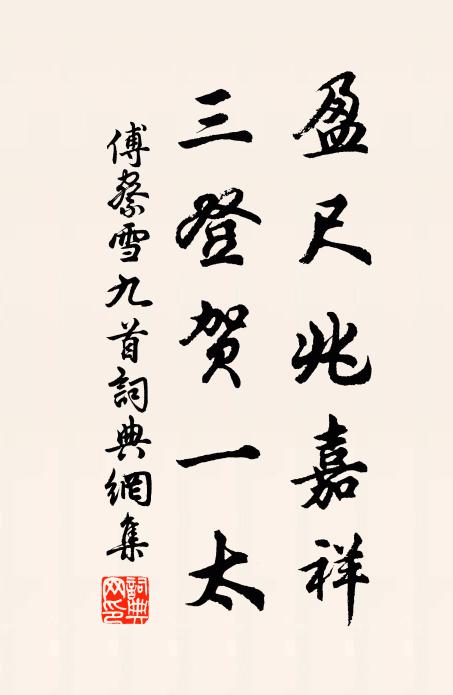 盈尺兆嘉祥
三登贺一太
傅察雪九首詞典網集
詞典网印